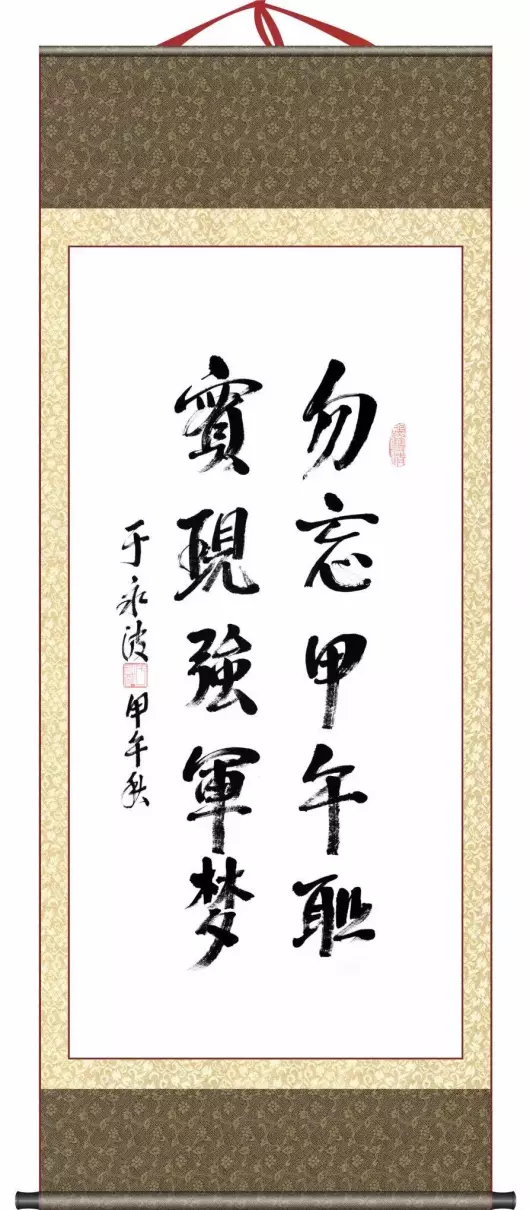 勿忘甲午耻
實現強軍梦
于永波 甲午秋